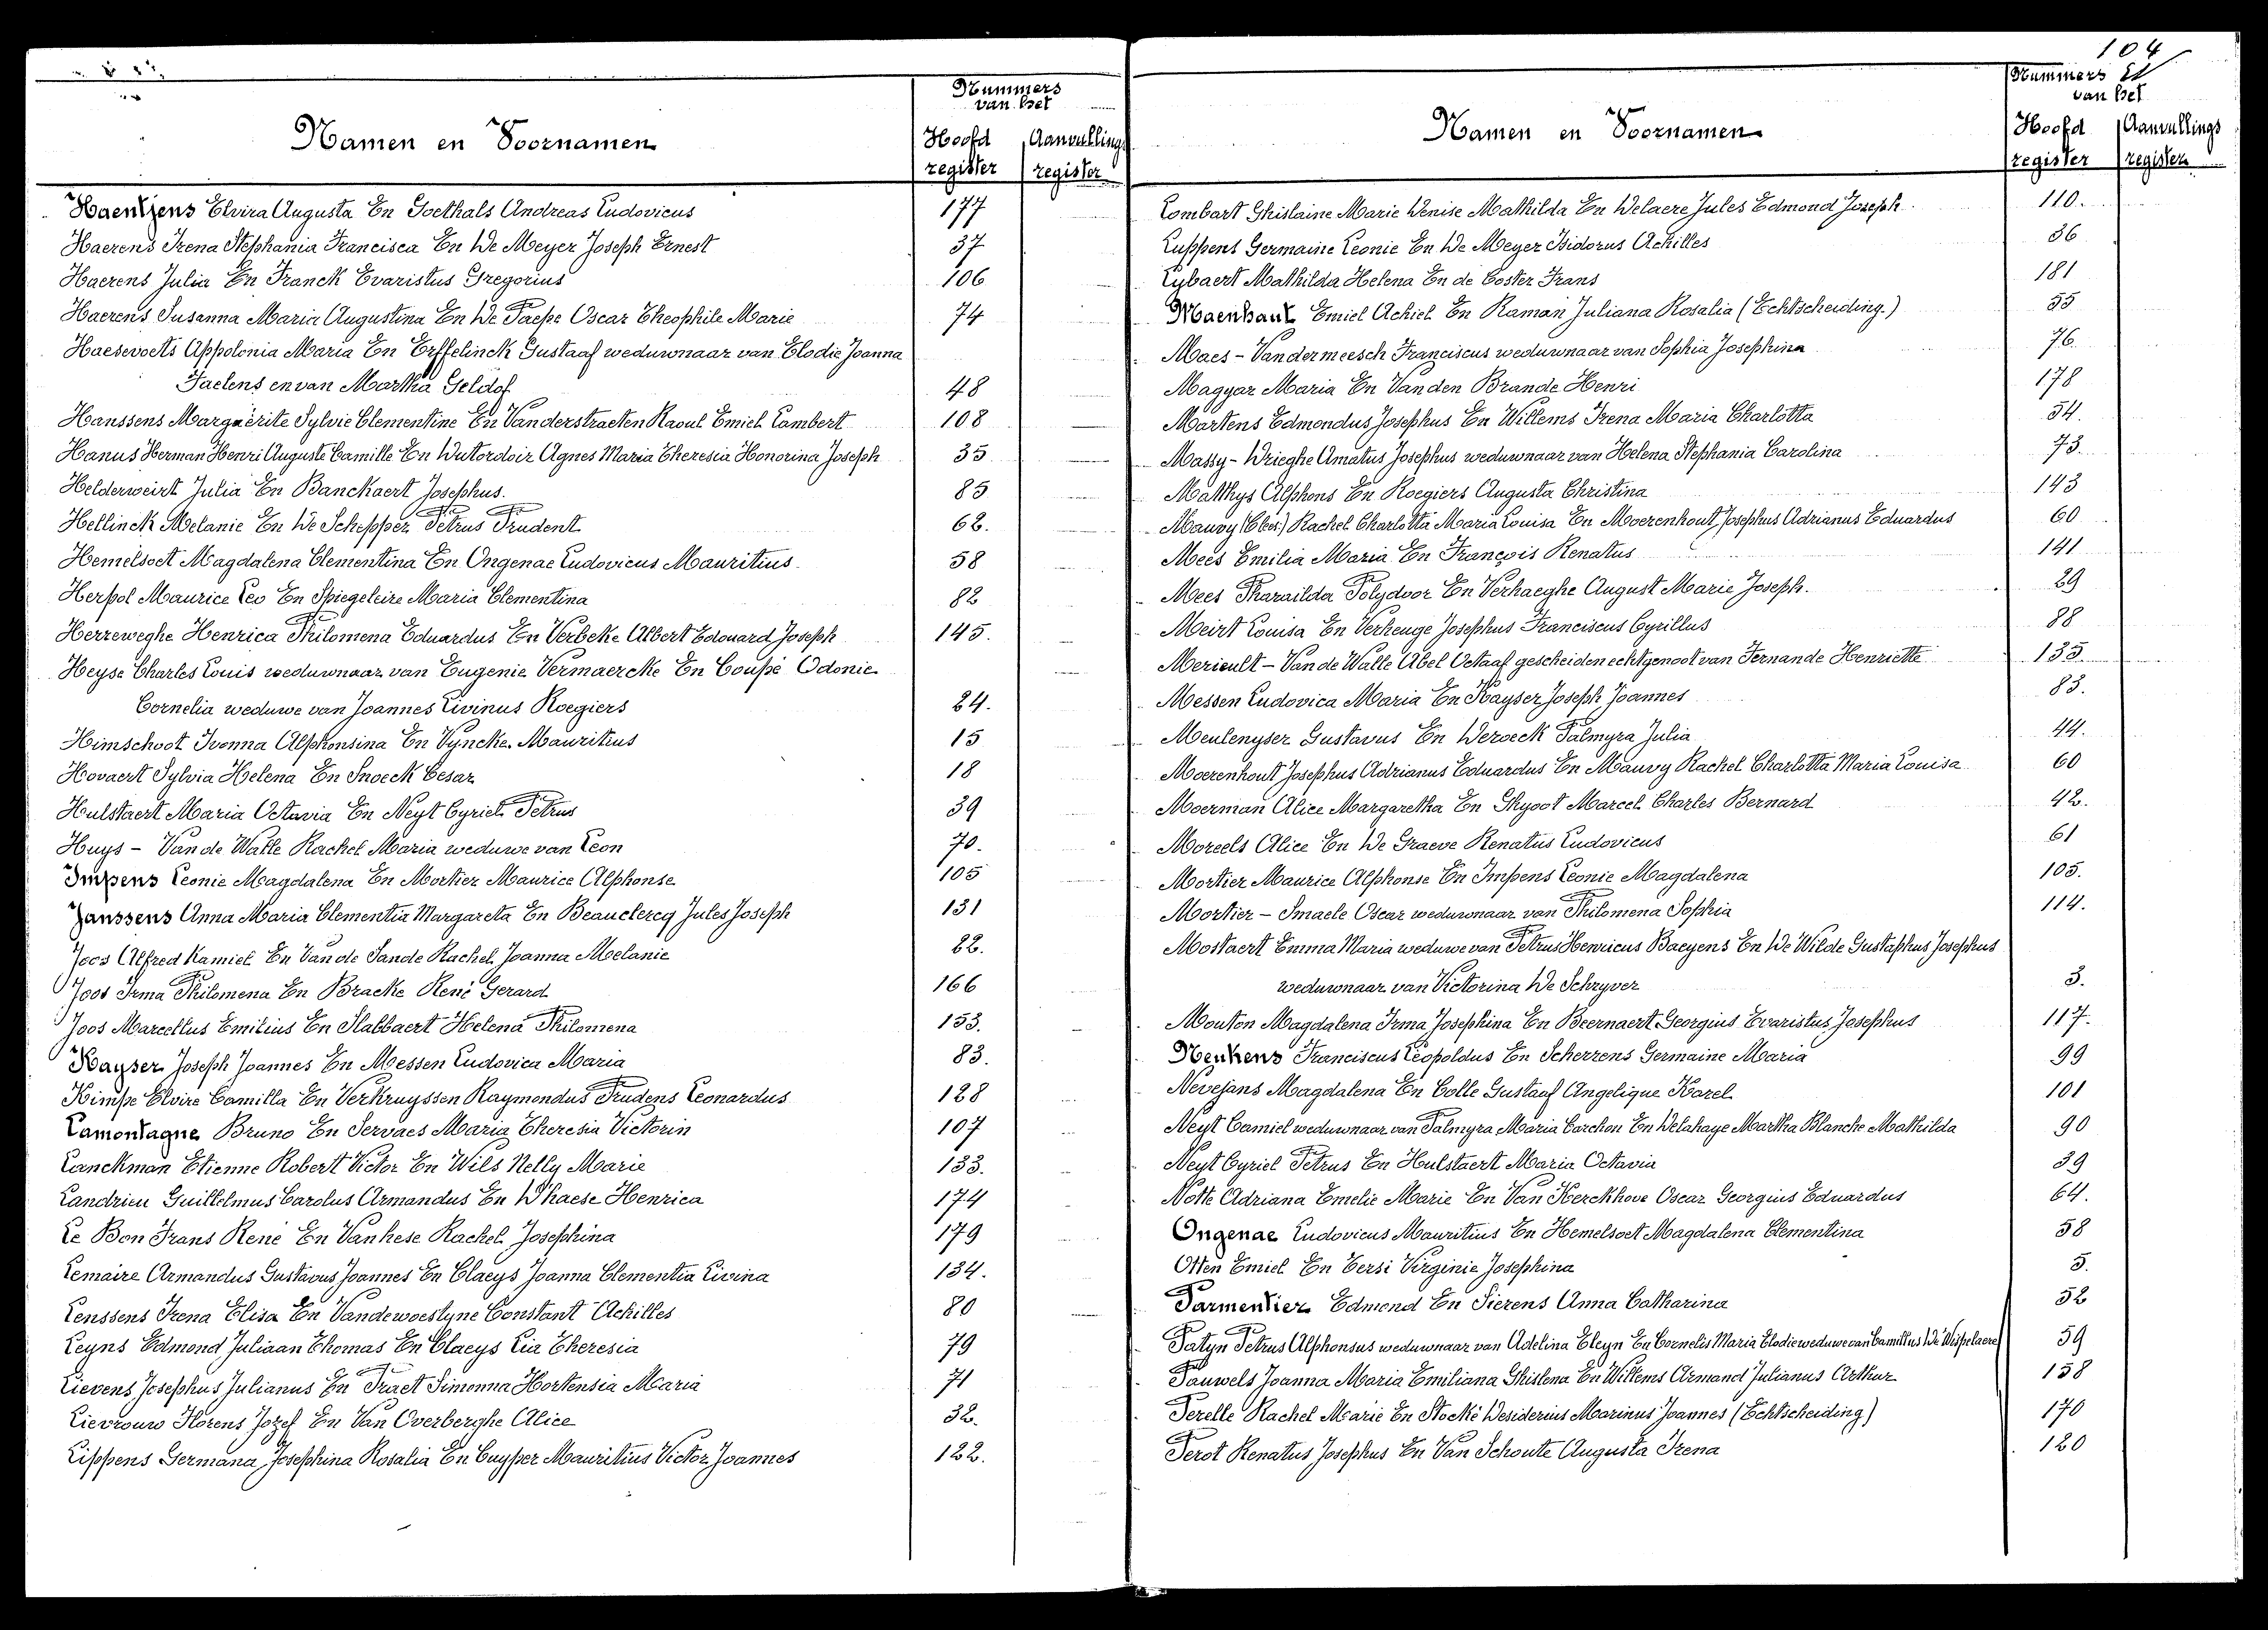 Namen en Voornamen
Nummers
van het
Hoofd
register
Aanvullings
register
Haentjens Elvira Augusta En Goethals Andreas Ludovicus 177
Haerens Irena Stephania Francisca En De Meyer Joseph Ernest 37
Haerens Julia En Franck Evaristus Gregorius 106
Haerens Susanna Maria Augustina En De Paepe Oscar Theophile Marie 74
Haesevoets Appolonia Maria En Erffelinck Gustaaf weduwnaar van Elodie Joanna
Faelens en van Martha Geldof 48
Hanssens Marguerite Sylvie Clementine En Vanderstraeten Raoul Emiel Lambert 108
Hanus Herman Henri Auguste Camille En Dutordoir Agnes Maria Theresia Honorina Joseph 35
Helderweirt Julia En Banckaert Josephus. 85
Hellinck Melanie En De Schepper Petrus Prudent 62.
Hemelsoet Magdalena Clementina En Ongenae Ludovicus Mauritius. 58
Herpol Maurice Leo En Spiegeleire Maria Clementina 82
Herreweghe Henrica Philomena Eduardus En Verbeke Albert Edouard Joseph 145.
Heyse Charles Louis weduwnaar van Eugenie Vermaercke En Coupé Odonie
Cornelia weduwe van Joannes Livinus Roegiers 24.
Himschoot Ivonna Alphonsina En Vyncke Mauritius 15
Hovaert Sylvia Helena En Snoeck Cesar 18
Hulstaert Maria Octavia En Neyt Cyriel Petrus 39
Huys - Van de Walle Rachel Maria weduwe van Leon 70.
Impens Leonie Magdalena En Mortier Maurice Alphonse 105
Janssens Anna Maria Clementia Margareta En Beauclercq Jules Joseph 131
Joos Alfred Kamiel En Van de Sande Rachel Joanna Melanie 22.
Joos Irma Philomena En Bracke René Gerard 166
Joos Marcellus Emilius En Slabbaert Helena Philomena 153.
Kayser Joseph Joannes En Messen Ludovica Maria 83.
Kimpe Elvire Camilla En Verkruyssen Raymondus Prudens Leonardus 128
Lamontagne Bruno En Servaes Maria Theresia Victorin 107
Lanckman Etienne Robert Victor En Wils Nelly Marie 133.
Landrieu Guillelmus Carolus Armandus En D'haese Henrica 174
Le Bon Frans René En Vanhese Rachel Josephina 179
Lemaire Armandus Gustavus Joannes En Claeys Joanna Clementia Livina 134.
Lenssens Irena Elisa En Vandewoestyne Constant Achilles 80
Leyns Edmond Juliaan Thomas En Claeys Lia Theresia 79
Lievens Josephus Julianus En Praet Simonna Hortensia Maria 71
Lievrouw Florens Jozef En Van Overberghe Alice 32.
Lippens Germana Josephina Rosalia En Cuyper Mauritius Victor Joannes 122.
104
Namen en Voornamen
Nummers
van het
Hoofd
register
Aanvullings
register
Lombart Ghislaine Marie Denise Mathilda En Delaere Jules Edmond Joseph 110.
Luppens Germaine Leonie En De Meyer Isidorus Achilles 36
Lybaert Mathilda Helena En de Coster Frans 181
Maenhaut Emiel Achiel En Raman Juliana Rosalia (Echtscheiding.) 55
Maes - Vandermeesch Franciscus weduwnaar van Sophia Josephina 76
Magyar Maria En Van den Brande Henri 178
Martens Edmondus Josephus En Willems Irena Maria Charlotta 54.
Massy - Drieghe Amatus Josephus weduwnaar van Helena Stephania Carolina 73.
Matthys Alphons En Roegiers Augusta Christina 143
Mauvy Rachel Charlotta Maria Louisa En Moerenhout Josephus Adrianus Eduardus 60
Mees Emilia Maria En François Renatus 141
Mees Pharailda Polydoor En Verhaeghe August Marie Joseph. 29
Meirt Louisa En Verheuge Josephus Franciscus Cyrillus 88
Merieult - Van de Walle Abel Octaaf gescheiden echtgenoot van Fernande Henriette 135.
Messen Ludovica Maria En Kayser Joseph Joannes 83.
Meulenyser Gustavus En Deroeck Palmyra Julia 44.
Moerenhout Josephus Adrianus Eduardus En Mauvy Rachel Charlotta Maria Louisa 60
Moerman Alice Margaretha En Ghyoot Marcel Charles Bernard 42.
Moreels Alice En De Graeve Renatus Ludovicus 61
Mortier Maurice Alphonse En Impens Leonie Magdalena 105.
Mortier - Smaele Oscar weduwnaar van Philomena Sophia 114.
Mostaert Emma Maria weduwe van Petrus Henricus Baeyens En De Wilde Gustaphus Josephus
weduwnaar van Victorina De Schryver 3.
Mouton Magdalena Irma Josephina En Beernaert Georgius Evaristus Josephus 117.
Neukens Franciscus Leopoldus En Scherrens Germaine Maria 99
Nevejans Magdalena En Colle Gustaaf Angelique Karel 101
Neyt Camiel weduwnaar van Palmyra Maria Carchon En Delahaye Martha Blanche Mathilda 90
Neyt Cyriel Petrus En Hulstaert Maria Octavia 39
Notte Adriana Emelie Marie En Van Kerckhove Oscar Georgius Eduardus 64.
Ongenae Ludovicus Mauritius En Hemelsoet Magdalena Clementina 58
Otten Emiel En Eersi Virginie Josephina 5.
Parmentier Edmond En Sierens Anna Catharina 52
Patyn Petrus Alphonsus weduwnaar van Adelina Eleyn En Cornelis Maria Elodie weduwe van Camillus De Wispelaere 59
Pauwels Joanna Maria Emiliana Ghislena En Willems Armand Julianus Arthur 158
Perelle Rachel Marie En Stocké Desiderius Marinus Joannes (Echtscheiding) 170
Perot Renatus Josephus En Van Schoute Augusta Irena 120